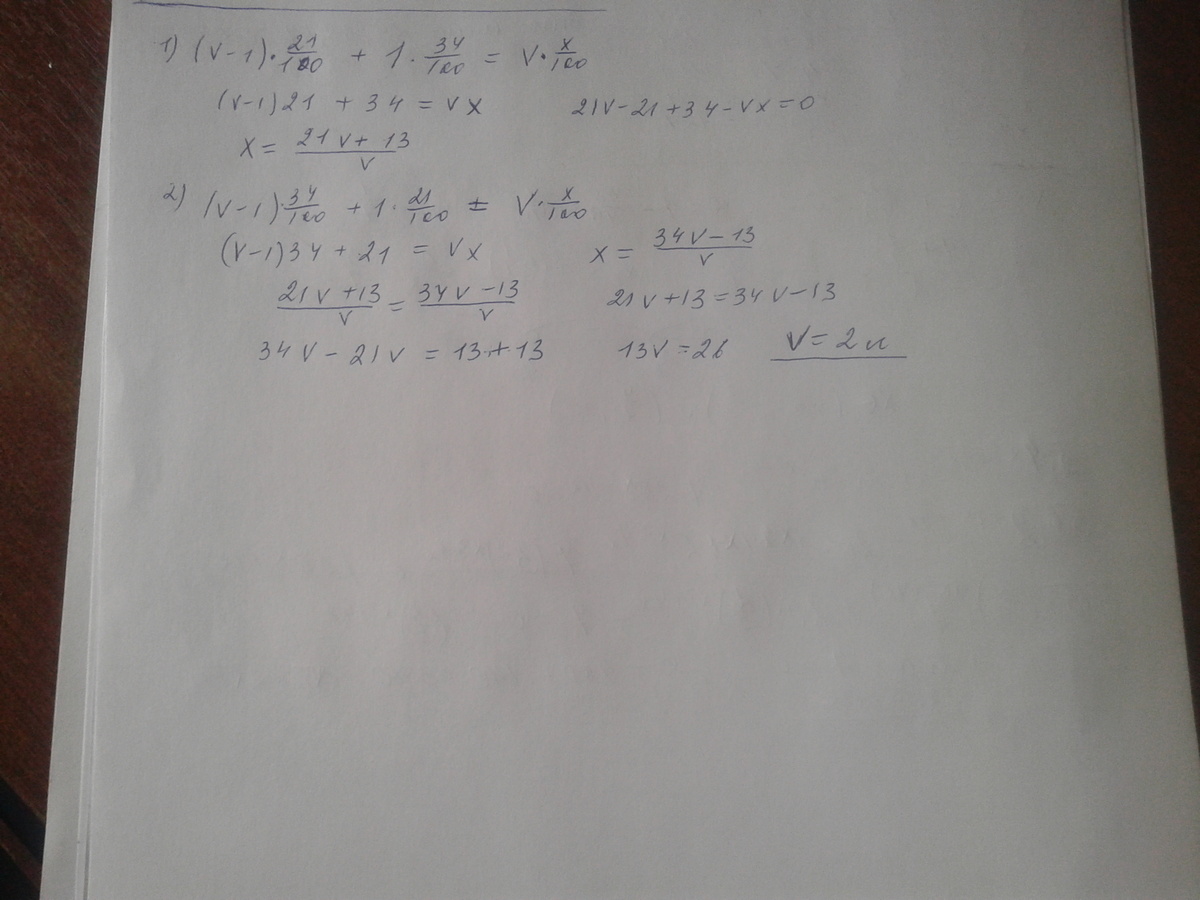 1) (v-1)·21/100 + 1·34/100 = v·x/100
(v-1)21 + 34 = vx 21v-21+34-vx=0
x = (21v+13)/v
2) (v-1)·34/100 + 1·21/100 = v·x/100
(v-1)34+21 = vx x = (34v-13)/v
(21v+13)/v = (34v-13)/v 21v+13=34v-13
34v-21v = 13+13 13v=26 V=2л